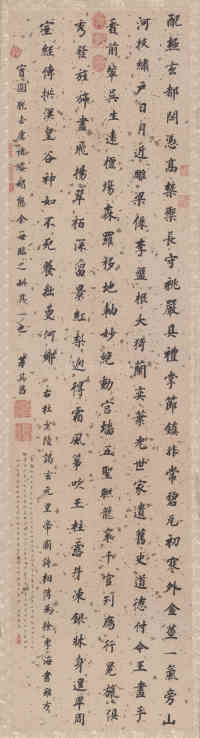 配極玄都閟憑高禁籞長守祧嚴具禮掌節鎮非常碧瓦初寒外金莖一氣旁山
河扶繡戶日月近雕梁仙李盤根大猗蘭奕葉光世家遺舊史道德付今王畫手
看前輩吳生遠擅場森羅移地軸妙絕動宮牆五聖聯龍袞千官列雁行冕旒俱
秀發旌旆盡飛揚翠柏深留景紅梨迥得霜風箏吹玉柱露井凍銀牀身退卑周
室經傳拱漢皇谷神如不死養拙更何鄉 右杜少陵謁玄元皇帝廟詩相傳為徐季海書雖有
脫去唐 態余每臨之此其一也 董其昌